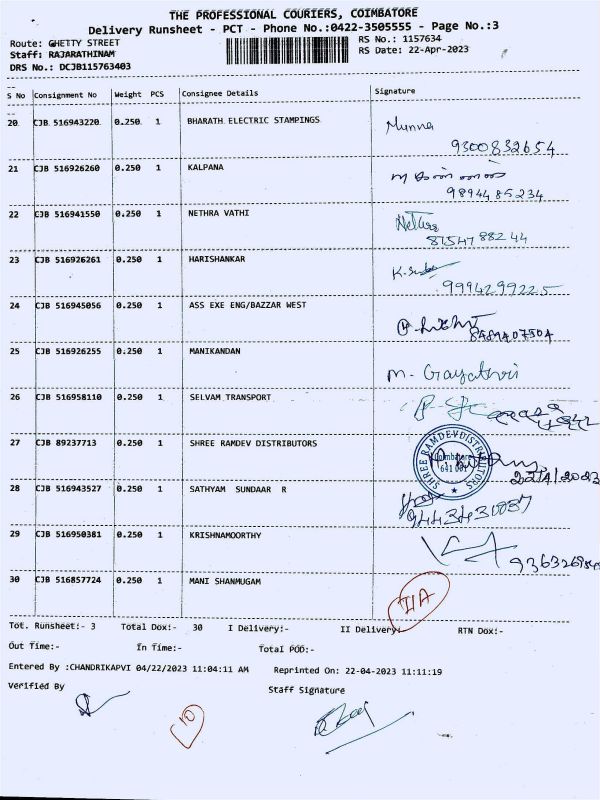 THE PROFESSIONAL COURIERS, COIMBATORE
Delivery Runsheet - PCT - Phone No.:0422-3505555 - Page No.:3
Route: GHETTY STREET
RS No.: 1157634
Staff: RAJARATHINAM
RS Date: 22-Apr-2023
DRS No.: DCJB115763403
S No Consignment No Weight PCS Consignee Details Signature
20 CJB 516943220 0.250 1 BHARATH ELECTRIC STAMPINGS Munna
9300832654
21 CJB 516926260 0.250 1 KALPANA
9894485234
22 CJB 516941550 0.250 1 NETHRA VATHI Nethra
8754788244
23 CJB 516926261 0.250 1 HARISHANKAR
9994299225
24 CJB 516945056 0.250 1 ASS EXE ENG/BAZZAR WEST
25 CJB 516926255 0.250 1 MANIKANDAN M. Gayathri
26 CJB 516958110 0.250 1 SELVAM TRANSPORT
27 CJB 89237713 0.250 1 SHREE RAMDEV DISTRIBUTORS
SHREE RAMDEV DISTRIBUTORS
Coimbatore
641 001
22/4/2023
28 CJB 516943527 0.250 1 SATHYAM SUNDAAR R
9443431037
29 CJB 516950381 0.250 1 KRISHNAMOORTHY
30 CJB 516857724 0.250 1 MANI SHANMUGAM
Tot. Runsheet:- 3 Total Dox:- 30 I Delivery:- II Delivery:- RTN Dox:-
Out Time:- In Time:- Total POD:-
Entered By :CHANDRIKAPVI 04/22/2023 11:04:11 AM Reprinted On: 22-04-2023 11:11:19
Verified By Staff Signature
10